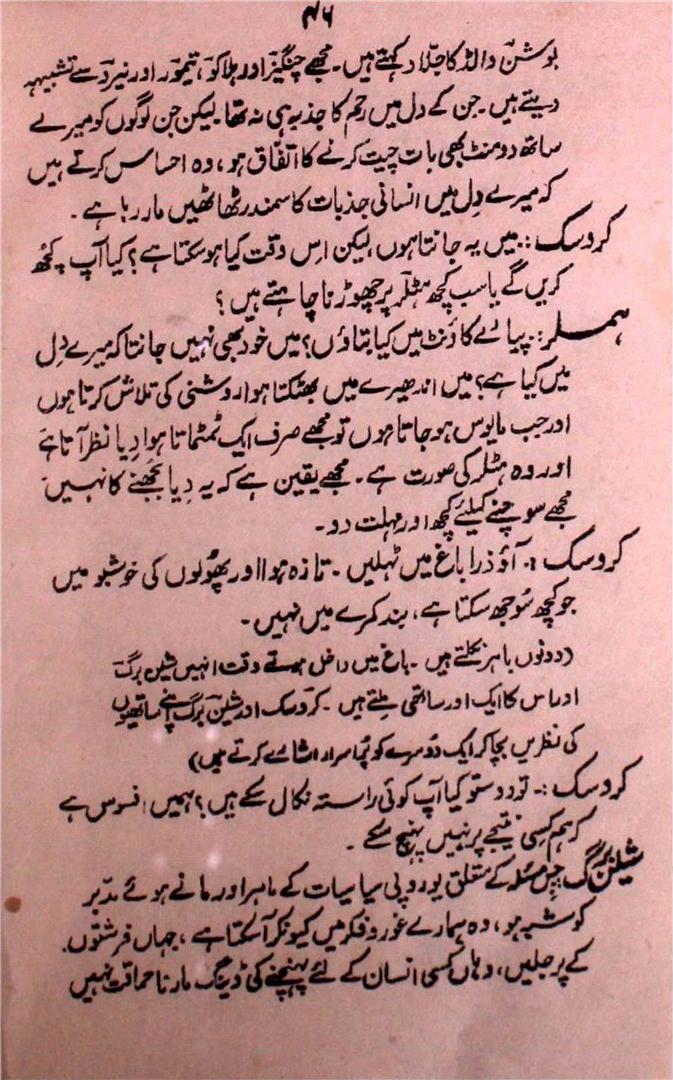 ۴۶
بوشن والڈ کا جلّاد کہتے ہیں۔ مجھے چنگیز اور ہلاکو، تیمور اور نیرو سے تشبیہہ
دیتے ہیں۔ جن کے دل میں رحم کا جذبہ ہی نہ تھا۔ لیکن جن لوگوں کو میرے
ساتھ دو منٹ بھی بات چیت کرنے کا اتفاق ہو، وہ احساس کرتے ہیں
کہ میرے دل میں انسانی جذبات کا سمندر ٹھاٹھیں مار رہا ہے۔
کروسک:۔ میں یہ جانتا ہوں لیکن اس وقت کیا ہو سکتا ہے؟ کیا آپ کچھ
کریں گے یا سب کچھ ہٹلر پر چھوڑنا چاہتے ہیں؟
ہملر:۔ پیارے کاؤنٹ میں کیا بتاؤں؟ میں خود بھی نہیں جانتا کہ میرے دل
میں کیا ہے؟ میں اندھیرے میں بھٹکتا ہوا روشنی کی تلاش کرتا ہوں
اور جب مایوس ہو جاتا ہوں تو مجھے صرف ایک ٹمٹماتا ہوا دِیا نظر آتا ہے
اور وہ ہٹلر کی صورت ہے۔ مجھے یقین ہے کہ یہ دِیا بجھنے کا نہیں
مجھے سوچنے کیلئے کچھ اور مہلت دو۔
کروسک:۔ آؤ ذرا باغ میں ٹہلیں۔ تازہ ہوا اور پھولوں کی خوشبو میں
جو کچھ سُوجھ سکتا ہے، بند کمرے میں نہیں۔
(دونوں باہر نکلتے ہیں۔ باغ میں داخل ہوتے وقت انہیں شلن برگ
اور اس کا ایک اور ساتھی ملتے ہیں۔ کروسک اور شلن برگ اپنے ساتھیوں
کی نظریں بچا کر ایک دوسرے کو پُراسرار اشارے کرتے ہیں)
کروسک:۔ تو دوستو کیا آپ کوئی راستہ نکال سکے ہیں؟ ہمیں افسوس ہے
کہ ہم کسی نتیجے پر نہیں پہنچ سکے۔
شلن برگ جس مسئلہ کے متعلق یوروپی سیاسیات کے ماہر اور مانے ہوئے مدبر
کو شبہ ہو، وہ ہمارے غور و فکر میں کیونکر آ سکتا ہے، جہاں فرشتوں
کے پر جلیں، وہاں کسی انسان کے لئے پہنچنے کی ڈینگ مارنا حماقت نہیں